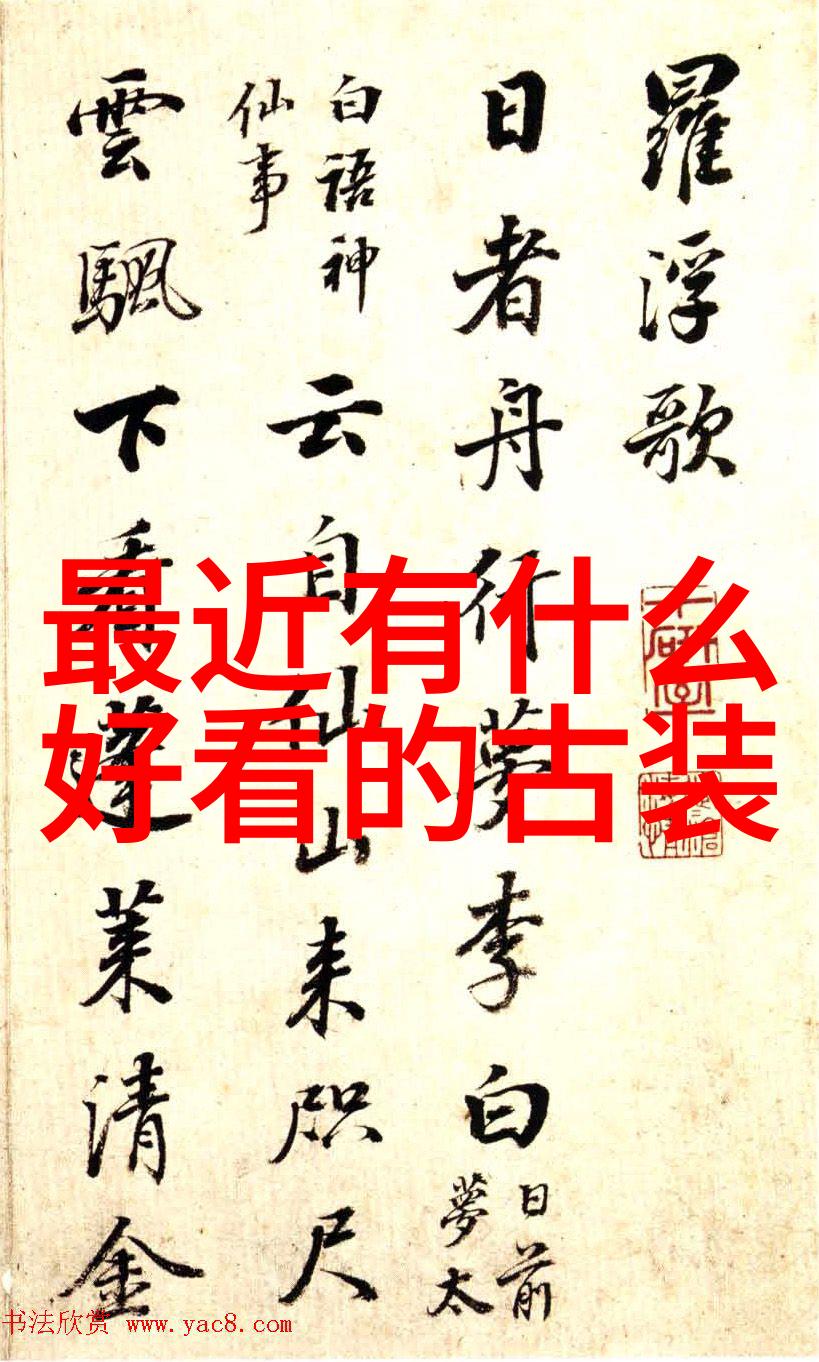 羅浮歌
日者舟行夢李白日前
夢太
白語神
仙事云自仙山来咫尺
雲颿下看蓬莱清金
最近有什么
好看的古装
书法欣赏 www.yac8.com